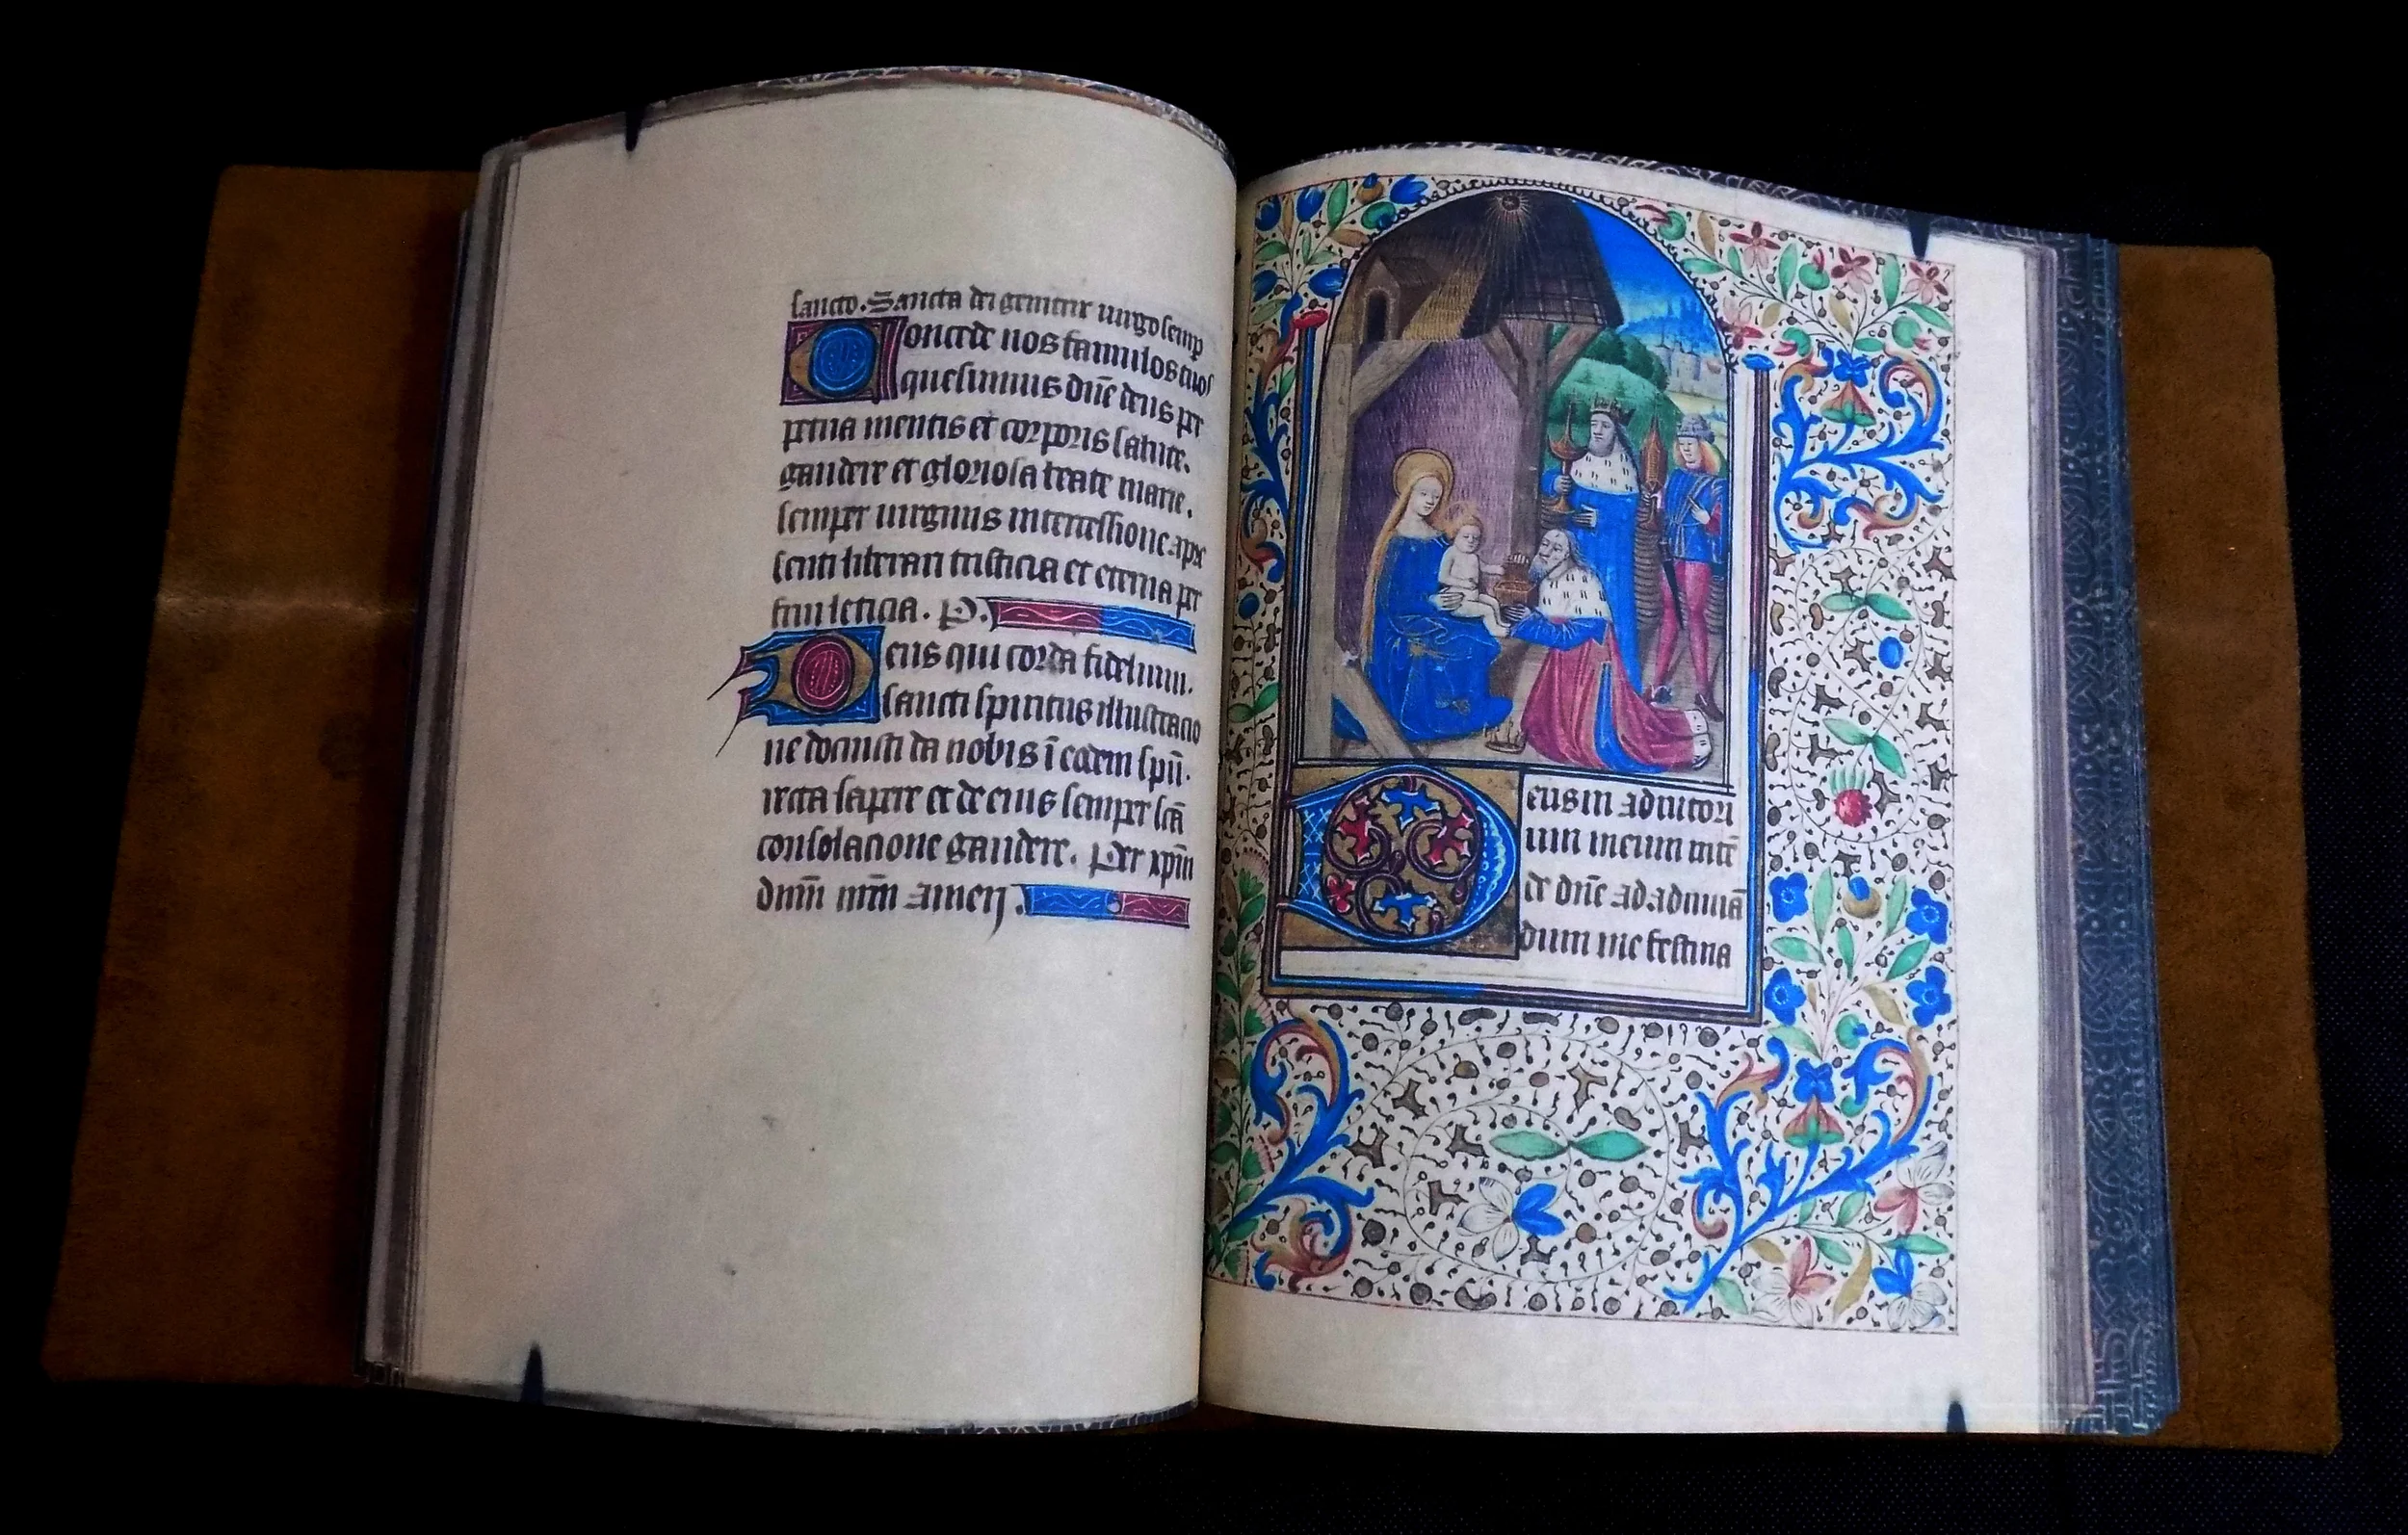 sancto. Sancta dei genitrix uirgo semp
Concede nos famulos tuos
quesumus dñe deus per
petua mentis et corporis salute.
gaudere et gloriosa beate marie.
semper uirginis intercessione a pre
senti liberari tristicia et eterna per
frui leticia. P.
Deus qui corda fidelium.
sancti spiritus illustracio
ne docuisti da nobis ī eodem spū.
recta sapere et de eius semper scā
consolacione gaudere. Per xpm̄
dnm̄ nrm̄ amen.
Deus in adiutori
um meum inten
de dñe ad adiuuā
dum me festina